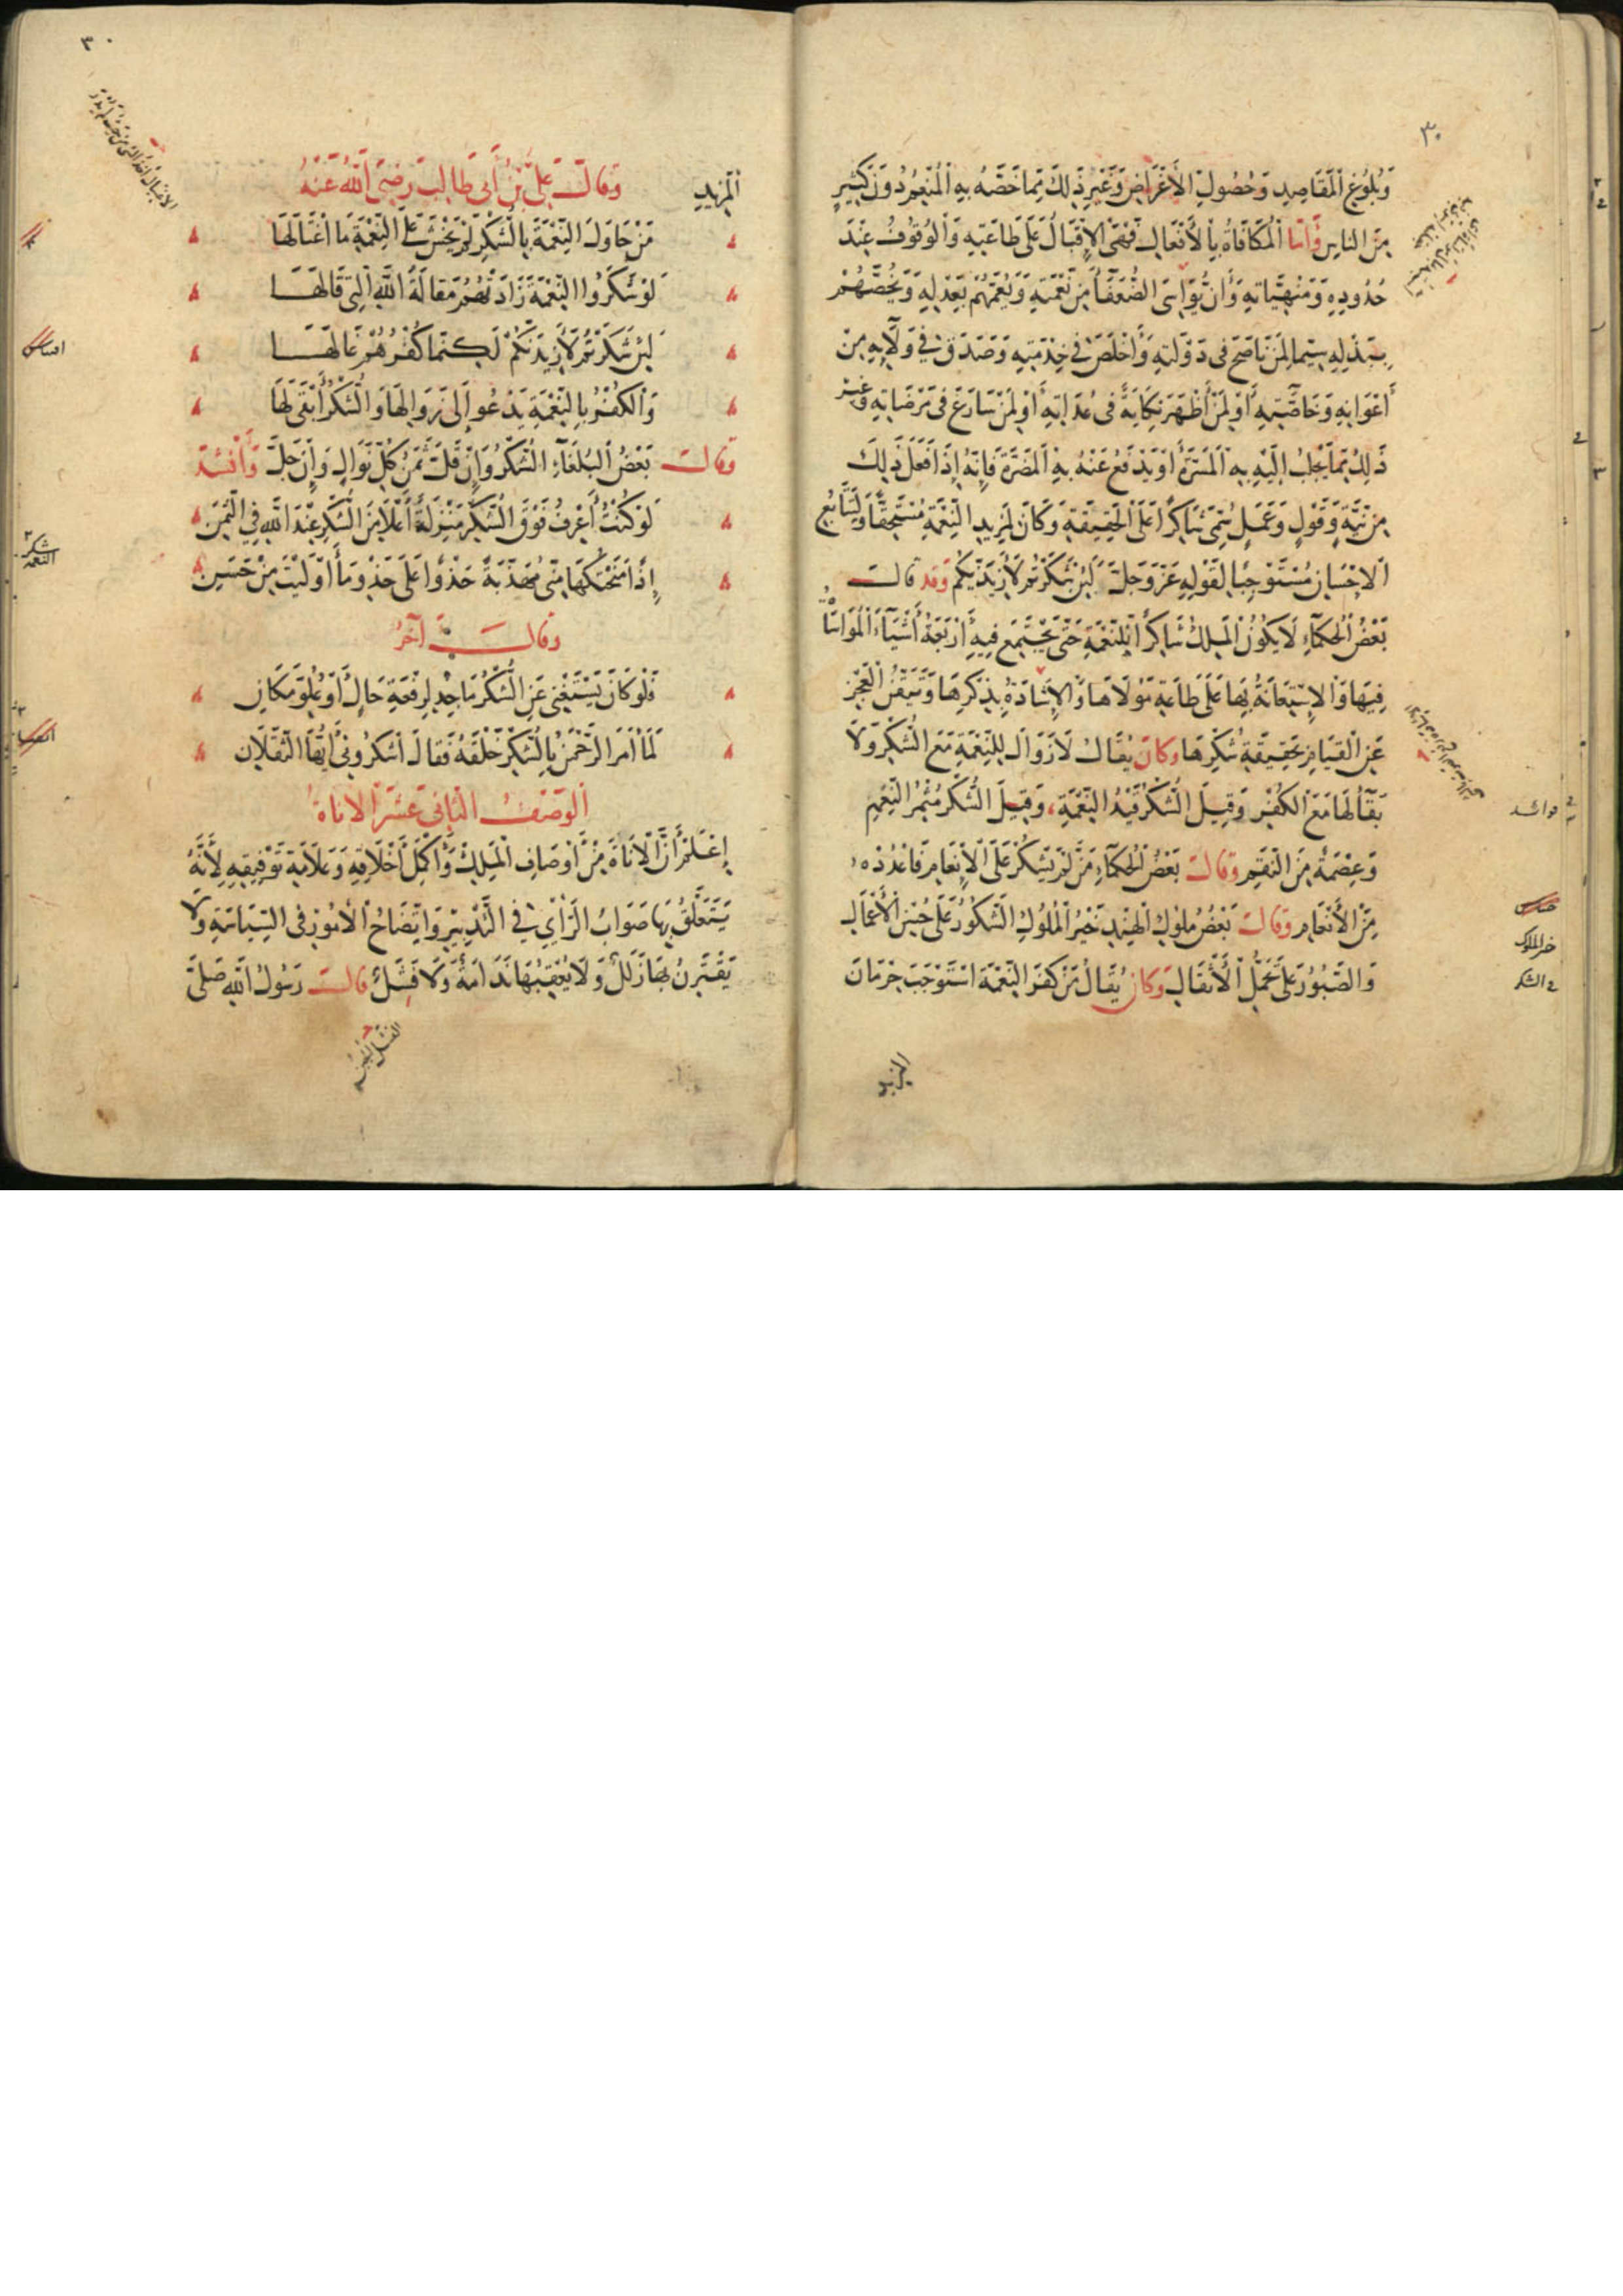 ٣٠
وَبُلُوغِ الْمَقَاصِدِ وَحُصُولِ الْأَغْرَاضِ وَغَيْرِ ذٰلِكَ مِمَّا خَصَّهُ بِهِ الْمُنْعِمُ دُونَ كَثِيرٍ
مِنَ النَّاسِ وَأَمَّا الْمُكَافَاةُ بِالْأَفْعَالِ فَهِيَ الْإِقْبَالُ عَلَى طَاعَتِهِ وَالْوُقُوفُ عِنْدَ
حُدُودِهِ وَمَنْهِيَّاتِهِ وَأَنْ يُوَاسِيَ الضُّعَفَاءَ مِنْ نِعْمَتِهِ وَيَعُمَّهُمْ بِعَدْلِهِ وَيَخُصَّهُمْ
بِبَذْلِهِ سِيَّمَا لِمَنْ نَاصَحَ فِي دَوْلَتِهِ وَأَخْلَصَ فِي خِدْمَتِهِ وَصَدَقَ فِي وَلَائِهِ مِنْ
أَعْوَانِهِ وَخَاصَّتِهِ أَوْ لِمَنْ أَظْهَرَ نِكَايَةً فِي عُدَاتِهِ أَوْ لِمَنْ سَارَعَ فِي مَرْضَاتِهِ وَغَيْرَ
ذٰلِكَ مِمَّا يَجْلِبُ إِلَيْهِ بِهِ الْمَسَرَّةَ أَوْ يَدْفَعُ عَنْهُ بِهِ الْمَضَرَّةَ فَإِنَّهُ إِذَا فَعَلَ ذٰلِكَ
مِنْ نِيَّةٍ وَقَوْلٍ وَعَمَلٍ سُمِّيَ شَاكِرًا عَلَى الْحَقِيقَةِ وَكَانَ لِمَزِيدِ النِّعْمَةِ مُسْتَحِقًّا وَلِتَتَابُعِ
الْإِحْسَانِ مُسْتَوْجِبًا لِقَوْلِهِ عَزَّ وَجَلَّ لَئِنْ شَكَرْتُمْ لَأَزِيدَنَّكُمْ وَقَد قَالَ
بَعْضُ الْحُكَمَاءِ لَا يَكُونُ الْمَلِكُ شَاكِرًا لِلنِّعْمَةِ حَتَّى يَجْتَمِعَ فِيهِ أَرْبَعَةُ أَشْيَاءَ الْمُوَاسَاةُ
فِيهَا وَالْإِسْتِعَانَةُ بِهَا عَلَى طَاعَةِ مَوْلَاهَا وَالْإِشَادَةُ بِذِكْرِهَا وَتَيَقُّنُ الْعَجْزِ
عَنِ الْقِيَامِ بِحَقِيقَةِ شُكْرِهَا وَكَانَ يُقَالُ لَا زَوَالَ لِلنِّعْمَةِ مَعَ الشُّكْرِ وَلَا
بَقَاءَ لَهَا مَعَ الْكُفْرِ وَقِيلَ الشُّكْرُ قَيْدُ النِّعْمَةِ، وَقِيلَ الشُّكْرُ مُثْمِرُ النِّعَمِ
وَعِصْمَةٌ مِنَ النِّقَمِ وَقَالَ بَعْضُ الْحُكَمَاءِ مَنْ لَمْ يَشْكُرْ عَلَى الْإِنْعَامِ فَاعْدُدْهُ
مِنَ الْأَنْعَامِ وَقَالَ بَعْضُ مُلُوكِ الْهِنْدِ خَيْرُ الْمُلُوكِ الشَّكُورُ عَلَى حُسْنِ الْأَعْمَالِ
وَالصَّبُورُ عَلَى تَحَمُّلِ الْأَثْقَالِ وَكَانَ يُقَالُ مَنْ كَفَرَ النِّعْمَةَ اسْتَوْجَبَ حِرْمَانَ
المزيد
خير الملوك
في الشكر
٣٠
الْمَزِيدِ وَقَالَ عَلِيُّ بْنُ أَبِي طَالِبٍ رَضِيَ اللَّهُ عَنْهُ
مَنْ جَاوَرَ النِّعْمَةَ بِالشُّكْرِ لَمْ يَخْشَ عَلَى النِّعْمَةِ مَا اغْتَالَهَا
لَوْ شَكَرُوا النِّعْمَةَ زَادَتْهُمُ مَقَالَةُ اللَّهِ الَّتِي قَالَهَا
لَئِنْ شَكَرْتُمْ لَأَزِيدَنَّكُمْ لَكِنَّمَا كُفْرُهُمْ غَالَهَا
وَالْكُفْرُ بِالنِّعْمَةِ يَدْعُو إِلَى زَوَالِهَا وَالشُّكْرُ أَبْقَى لَهَا
وَقَالَ بَعْضُ الْبُلَغَاءِ الشُّكْرُ وَإِنْ قَلَّ ثَمَنُ كُلِّ نَوَالٍ وَإِنْ جَلَّ وَأَنْشَدَ
لَوْ كُنْتُ أَعْرِفُ فَوْقَ الشُّكْرِ مَنْزِلَةً أَعْلَا مِنَ الشُّكْرِ عِنْدَ اللَّهِ فِي الثَّمَنِ
إِذًا مَنَحْتُكَهَا مِنِّي مُهَذَّبَةً حَذْوًا عَلَى حَذْوِ مَا أَوْلَيْتَ مِنْ حَسَنِ
وَقَالَ آخَرُ
فَلَوْ كَانَ يَسْتَغْنِي عَنِ الشُّكْرِ مَاجِدٌ لِرِفْعَةِ حَالٍ أَوْ عُلُوِّ مَكَانِ
لَمَا أَمَرَ الرَّحْمٰنُ بِالشُّكْرِ خَلْقَهُ فَقَالَ اشْكُرُونِي أَيُّهَا الثَّقَلَانِ
الْوَصْفُ الثَّانِي عَشَرَ الْأَنَاةُ
إِعْلَمْ أَنَّ الْأَنَاةَ مِنْ أَوْصَافِ الْمَلِكِ وَأَكْمَلِ أَخْلَاقِهِ وَعَلَامَةِ تَوْفِيقِهِ لِأَنَّهُ
يَتَعَلَّقُ بِهَا صَوَابُ الرَّأْيِ فِي التَّدْبِيرِ وَاتِّضَاحُ الْأُمُورِ فِي السِّيَاسَةِ وَلَا
يَقْتَرِنُ بِهَا زَلَلٌ وَلَا يُعْقِبُهَا نَدَامَةٌ وَلَا فَشَلٌ قَالَ رَسُولُ اللَّهِ صَلَّى
شكر
النعمة